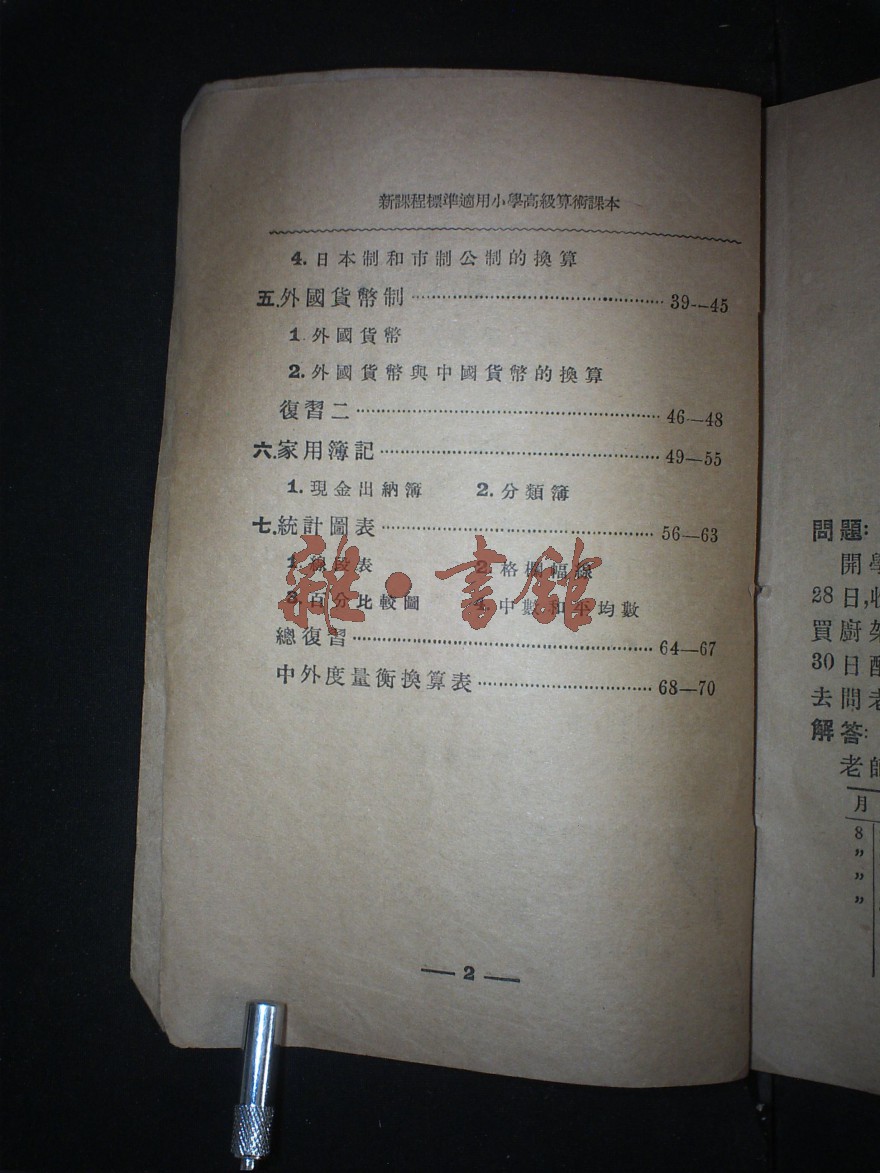 新課程標準適用小學高級算術課本
4. 日本制和市制公制的換算
五. 外國貨幣制 39—45
1. 外國貨幣
2. 外國貨幣與中國貨幣的換算
復習二 46—48
六. 家用簿記 49—55
1. 現金出納簿 2. 分類簿
七. 統計圖表 56—63
1. 線段表 2. 格欄幅線
3. 百分比較圖 4. 中數和平均數
總復習 64—67
中外度量衡換算表 68—70
— 2 —
雜·書館
問題:
開學
28日,收
買廚架
30日配
去問老
解答:
老師
月
8
〃
〃
〃